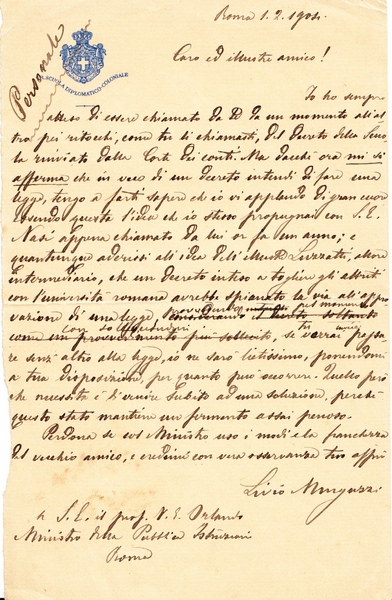 Roma 1. 2. 1904.
Personale
SCUOLA DIPLOMATICO-COLONIALE
Caro ed illustre amico!
Io ho sempre
atteso di essere chiamato da te da un momento all'al-
tro pei ritocchi, come tu li chiamasti, del Decreto della Scuola
rinviato dalla Corte dei conti. Ma dacchè ora mi si
afferma che in vece di un decreto intendi di fare una
legge, tengo a farti sapere che io vi applaudo di gran cuore
essendo questa l'idea che io stesso propugnai con S. E.
Nasi appena chiamato da lui or fa un anno; e
quantunque aderissi all'idea dell' Luzzatti, allora
intermediario, che un decreto inteso a togliere gli attriti
con l'università romana avrebbe spianato la via all'appro-
vazione di una legge,
come un provvedimento più sollecito, se vorrai passa-
re senz'altro alla legge, io ne sarò lietissimo, ponendomi
a tua disposizione, per quanto può occorrere. Quello però
che necessita è di venire subito ad una soluzione, perchè
questo stato mantiene un fermento assai penoso.
Perdona se col Ministro uso i modi e la franchezza
del vecchio amico, e credimi con vera osservanza tuo
Livio
A S. E. il prof. V. E. Orlando
Ministro della Pubblica Istruzione
Roma